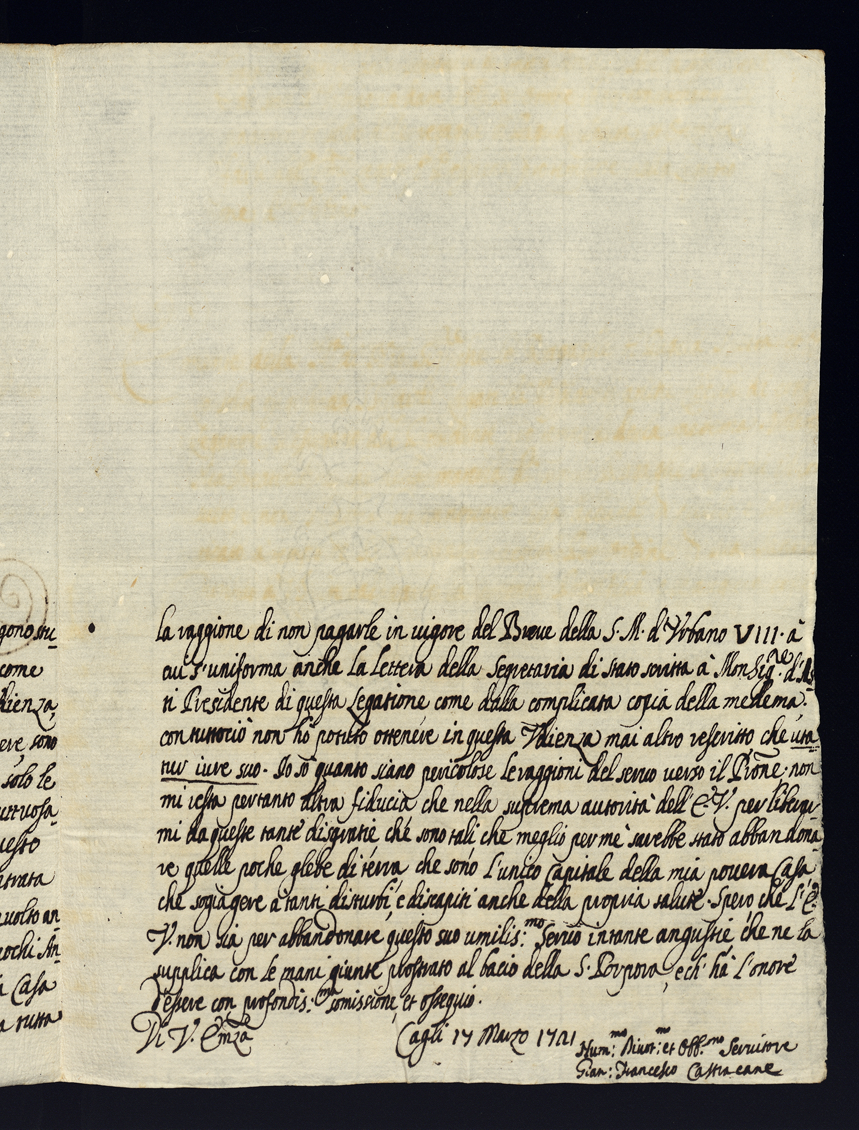 la raggione di non pagarle in vigore del Breve della S. M. d'Vrbano VIII. à
cui s'uniforma anche la lettera della Segretaria di Stato scritta à Monsig.re d'As-
ti Presidente di questa Legatione come dalla complicata copia della medema.
con tuttociò non hò potuto ottenere in questa Vdienza mai altro rescritto che uta-
tur iure suo. Io sò quanto siano pericolose le raggioni del servo verso il Prõne. non
mi resta pertanto altra fiducia che nella suprema autorità dell'E. V. per liberar-
mi da queste tante disgratie che sono tali che meglio per mè sarebbe stato abbandona-
re quelle poche glebe di terra che sono l'unico capitale della mia povera Casa
che sogiagere à tanti disturbi, e discapiti anche della propria salute. Spero che l'E.
V. non sia per abbandonare questo suo umilis.mo Servo in tante angustie che ne la
supplica con le mani giunte prostrato al bacio della S. Porpora, e ch'hà l'onore
d'essere con profondis.ma somissione, et ossequio.
Di V. Emza
Cagli 17 Marzo 1721
Hum.mo Divot.mo et Obb.mo Servitore
Gian: Francesco Castracane
gono su-
come
dienza,
ere, sono
solo le
uttuosa
uesto
ntrata
volto an
ochi An-
a Casa
a tutta